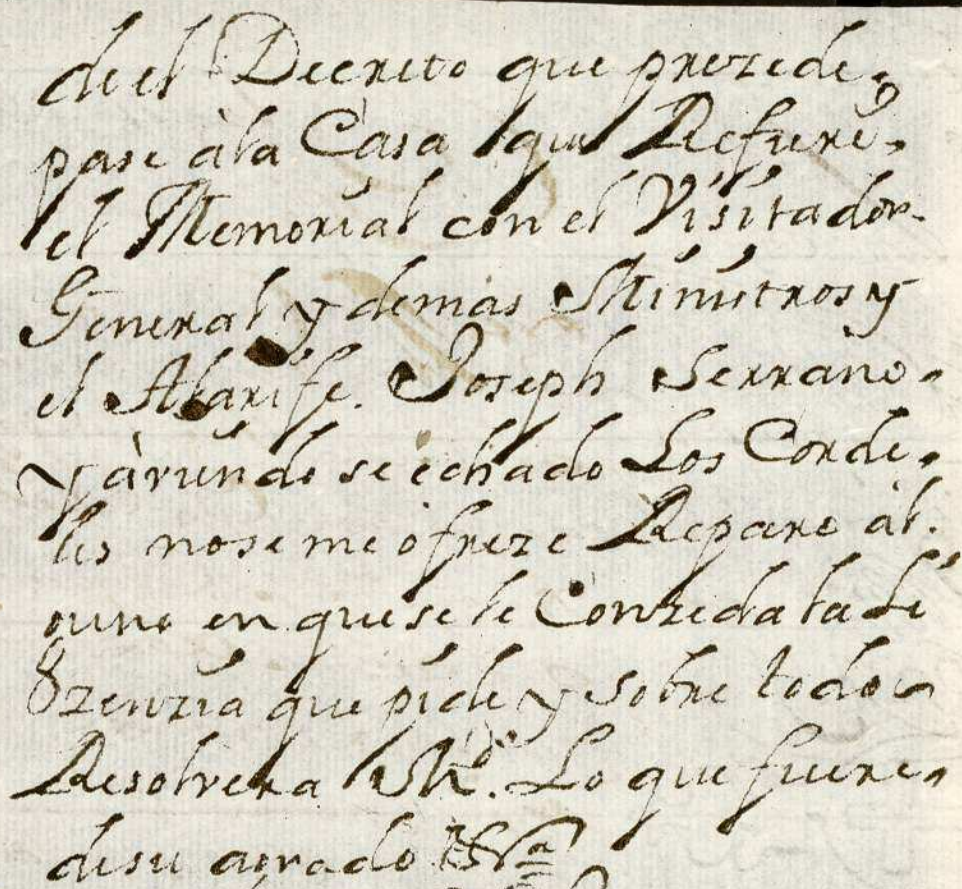 de el Decreto que prezede,
pase àla Casa que Refiere,
el Memorial con el Visitador
General y demas Ministros y
el Alarife. Joseph Serrano
y àviendose echado Los Corde,
les nose me ofreze Reparo àl.
guno en quese le Conzeda la Li
zenzia que pide y sobre todo
Resolvera VMd. Lo que fuere,
desu agrado